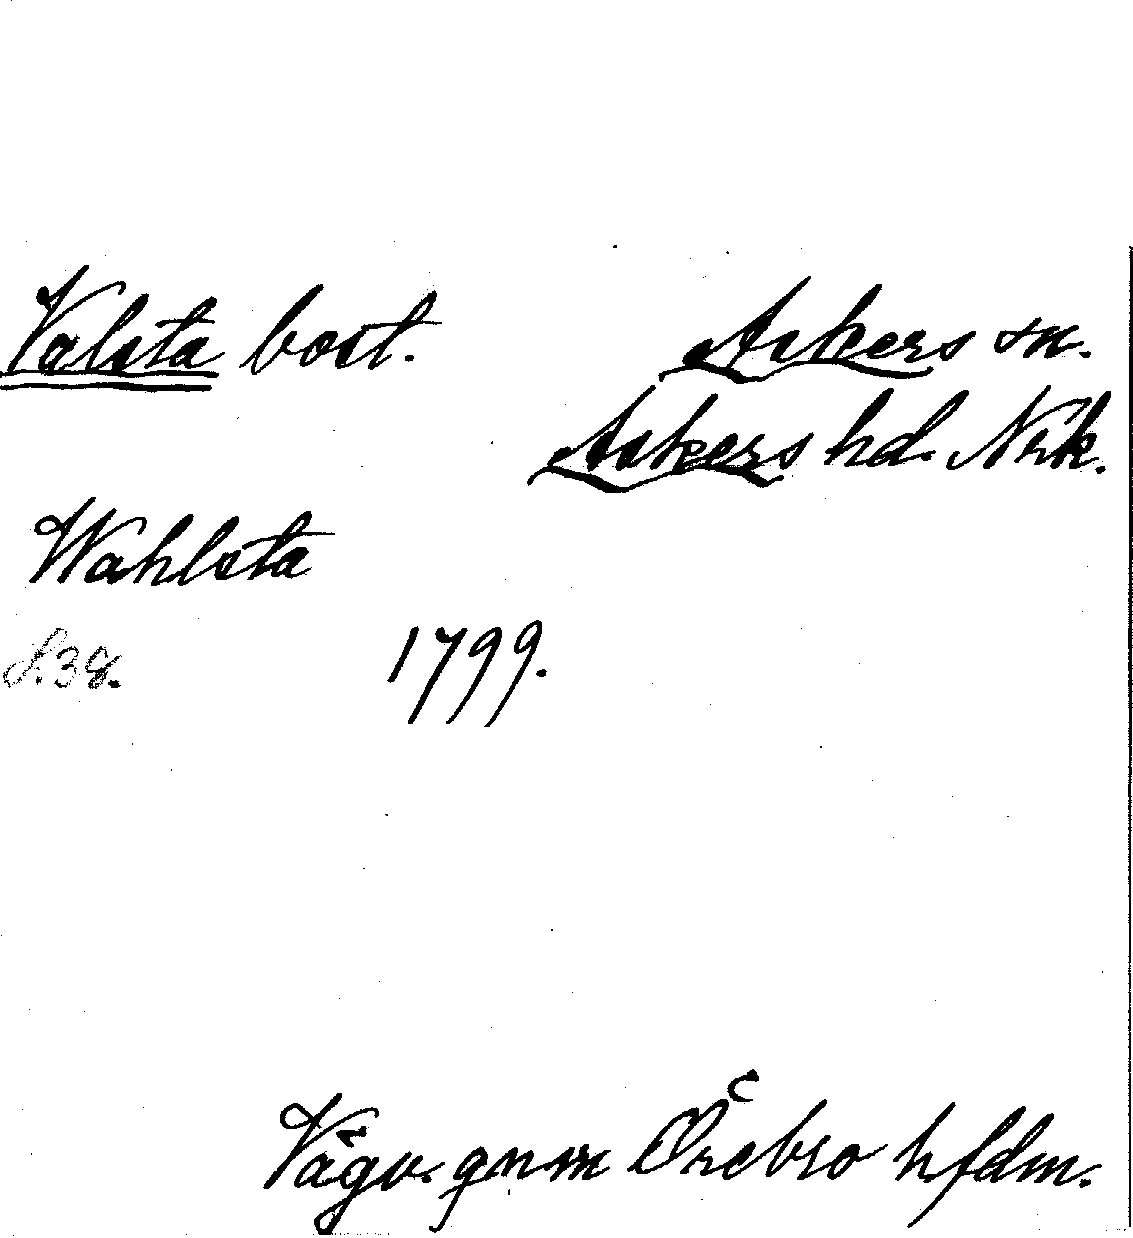 Valsta bost. Askers sn.
Askers hd. Nrk.
Wahlsta
S. 38. 1799.
Vägv. gnm Örebro hfdm.